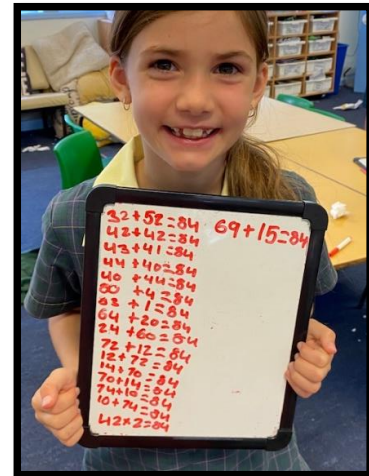 32+52=84
42+42=84
43+41=84
44+40=84
40+44=84
80+4=84
83+1=84
64+20=84
24+60=84
72+12=84
12+72=84
14+70=84
70+14=84
74+10=84
10+74=84
42×2=84
69+15=84